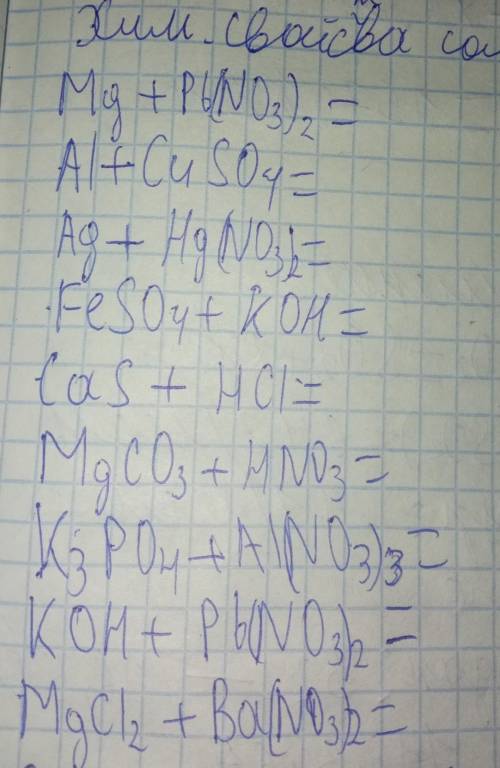 Хим. свойства со
Mg + Pb(NO₃)₂ =
Al + CuSO₄ =
Ag + Hg(NO₃)₂ =
FeSO₄ + KOH =
CaS + HCl =
MgCO₃ + HNO₃ =
K₃PO₄ + Al(NO₃)₃ =
KOH + Pb(NO₃)₂ =
MgCl₂ + Ba(NO₃)₂ =